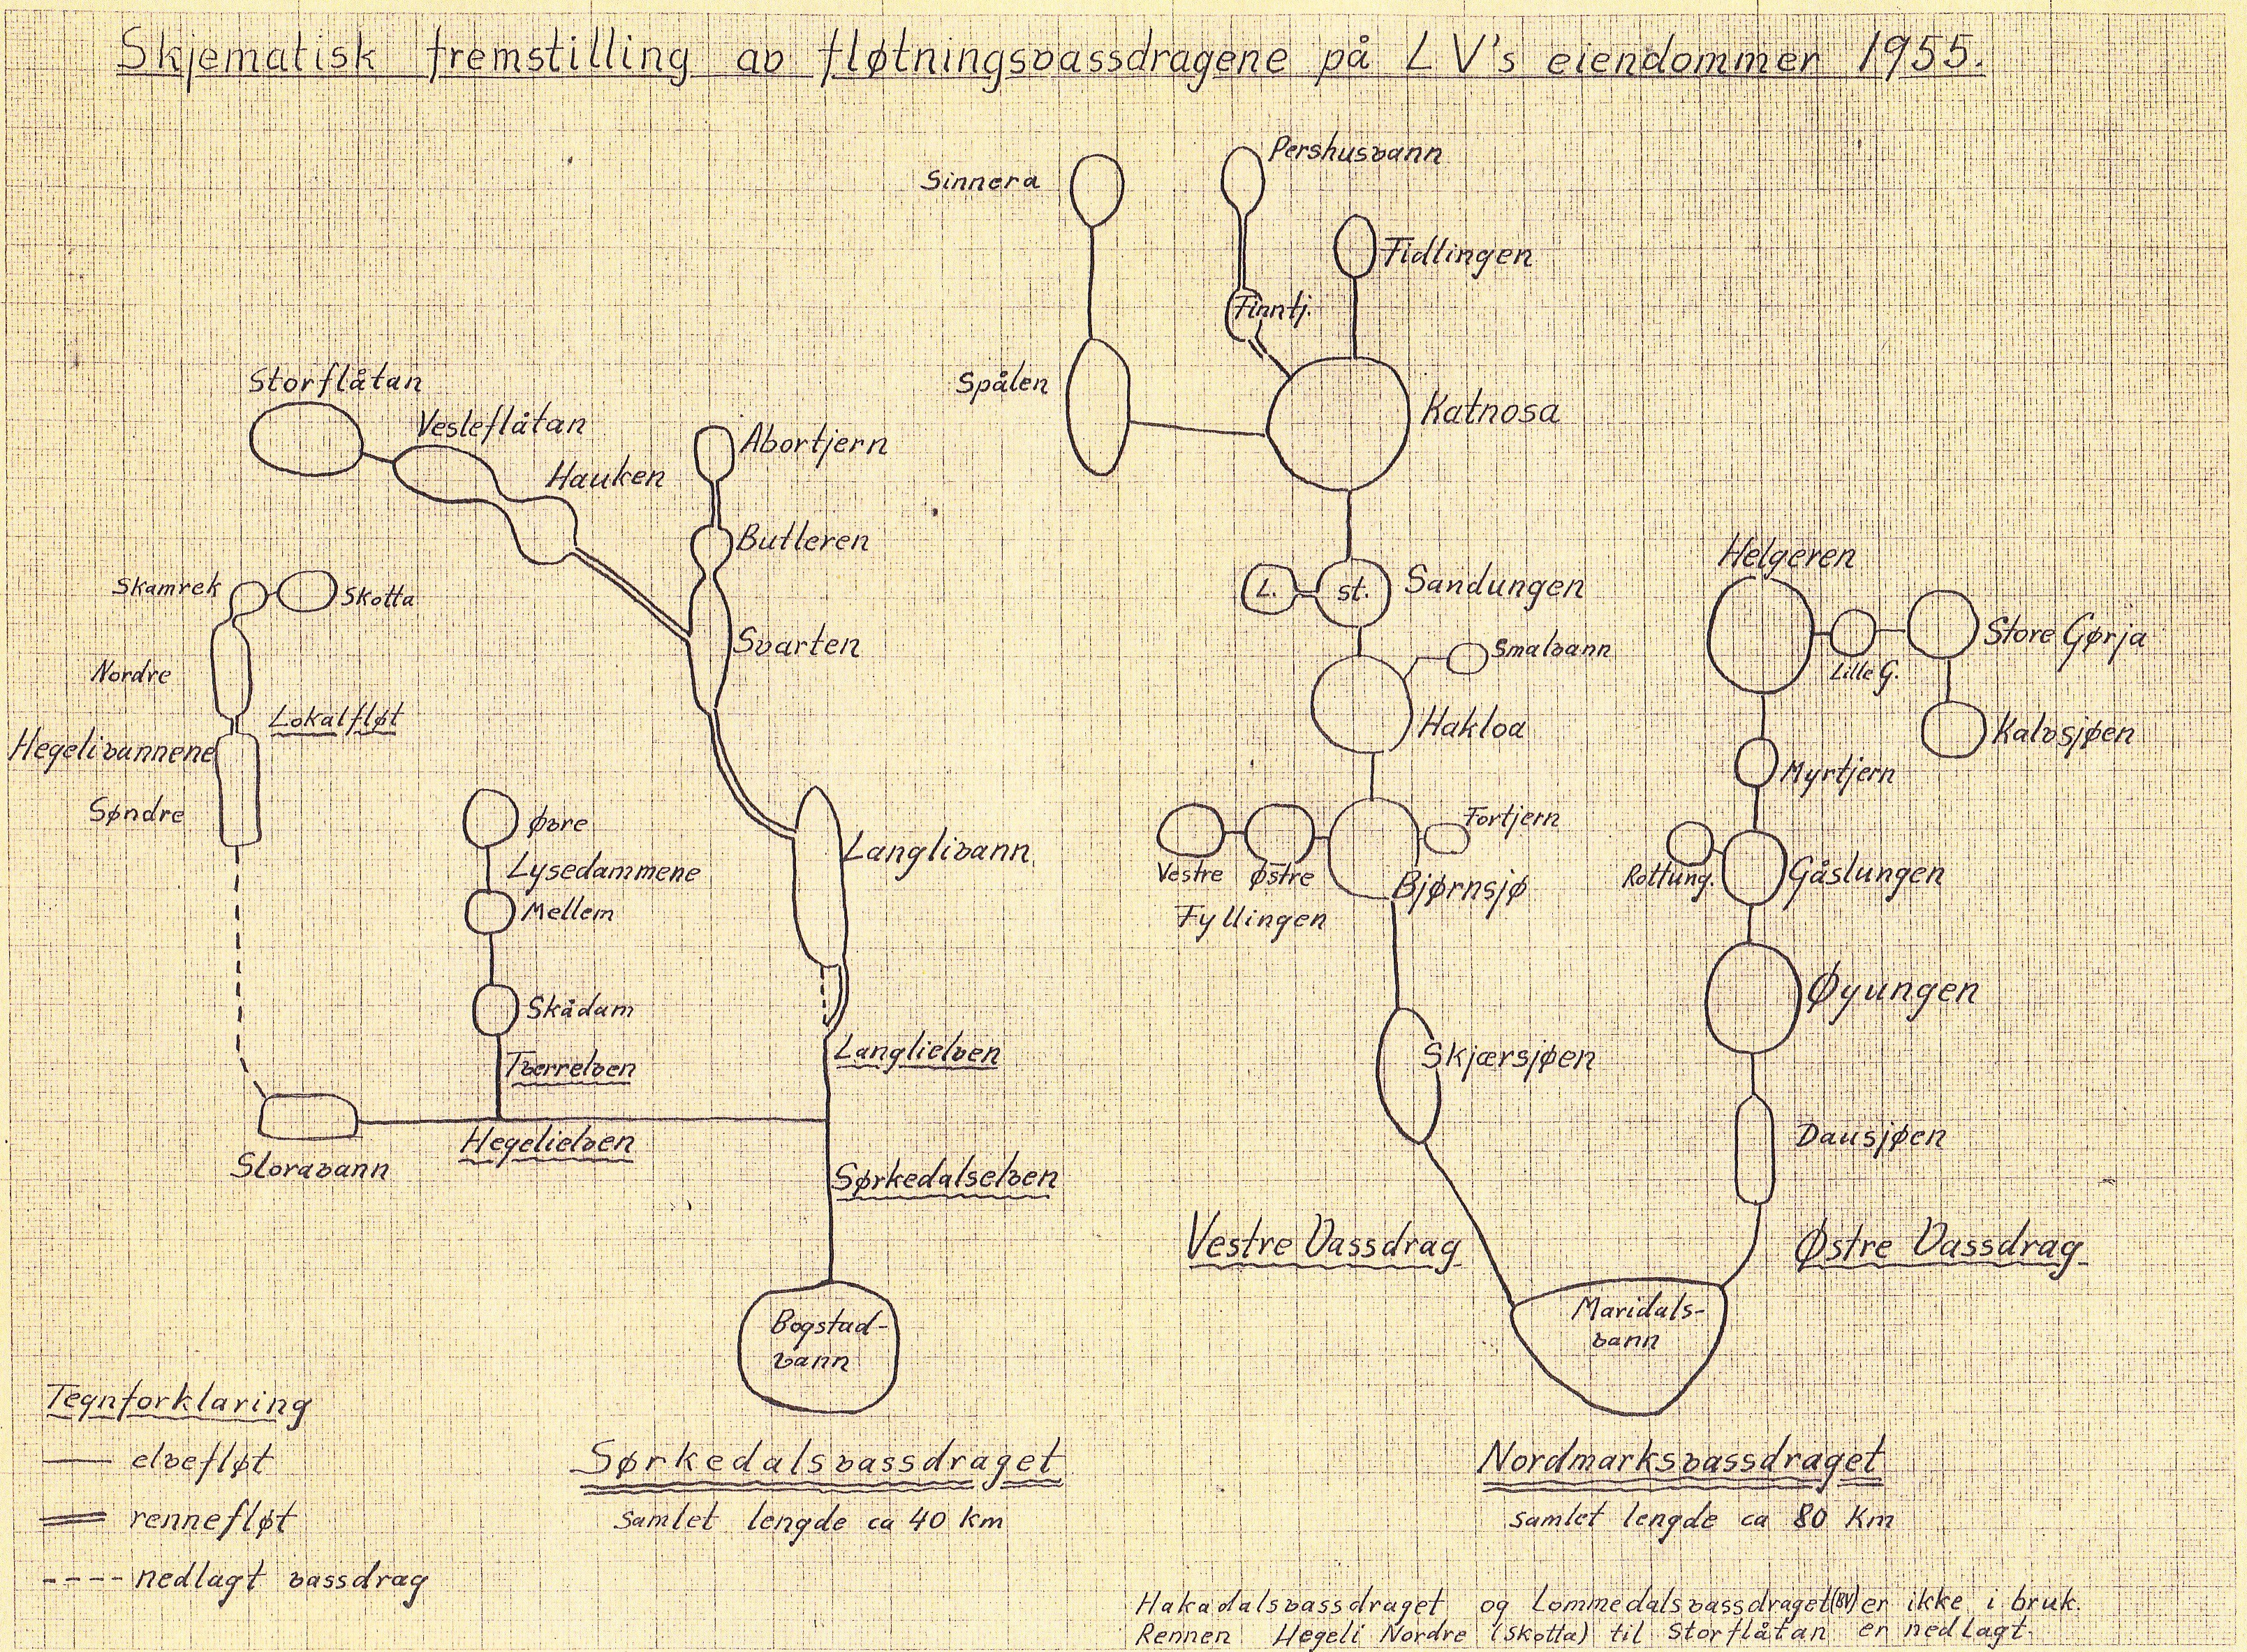 Skjematisk fremstilling av fløtningsvassdragene på LV's eiendommer 1955.
Sinnera
Pershusvann
Fidlingen
Finntj.
Spålen
Katnosa
Storflåtan
Vesleflåtan
Hauken
Abortjern
Butleren
Svarten
Skamrek
Skotta
Nordre
Lokalfløt
Hegelivannene
Søndre
Øvre
Lysedammene
Mellem
Skådam
Tverrelven
Langlivann
Langlielven
Hegelielven
Sloravann
Sørkedalselven
Bogstad-
vann
L.
st.
Sandungen
Smalvann
Hakloa
Fortjern
Vestre
Østre
Fyllingen
Bjørnsjø
Skjærsjøen
Vestre Vassdrag
Helgeren
Lille G.
Store Gørja
Kalvsjøen
Myrtjern
Rottung.
Gåslungen
Øyungen
Dausjøen
Østre Vassdrag
Maridals-
vann
Tegnforklaring
elvefløt
rennefløt
nedlagt vassdrag
Sørkedalsvassdraget
samlet lengde ca 40 km
Nordmarksvassdraget
samlet lengde ca 80 km
Hakadalsvassdraget og Lommedalsvassdraget (BV) er ikke i bruk.
Rennen Hegeli Nordre (Skotta) til Storflåtan er nedlagt.